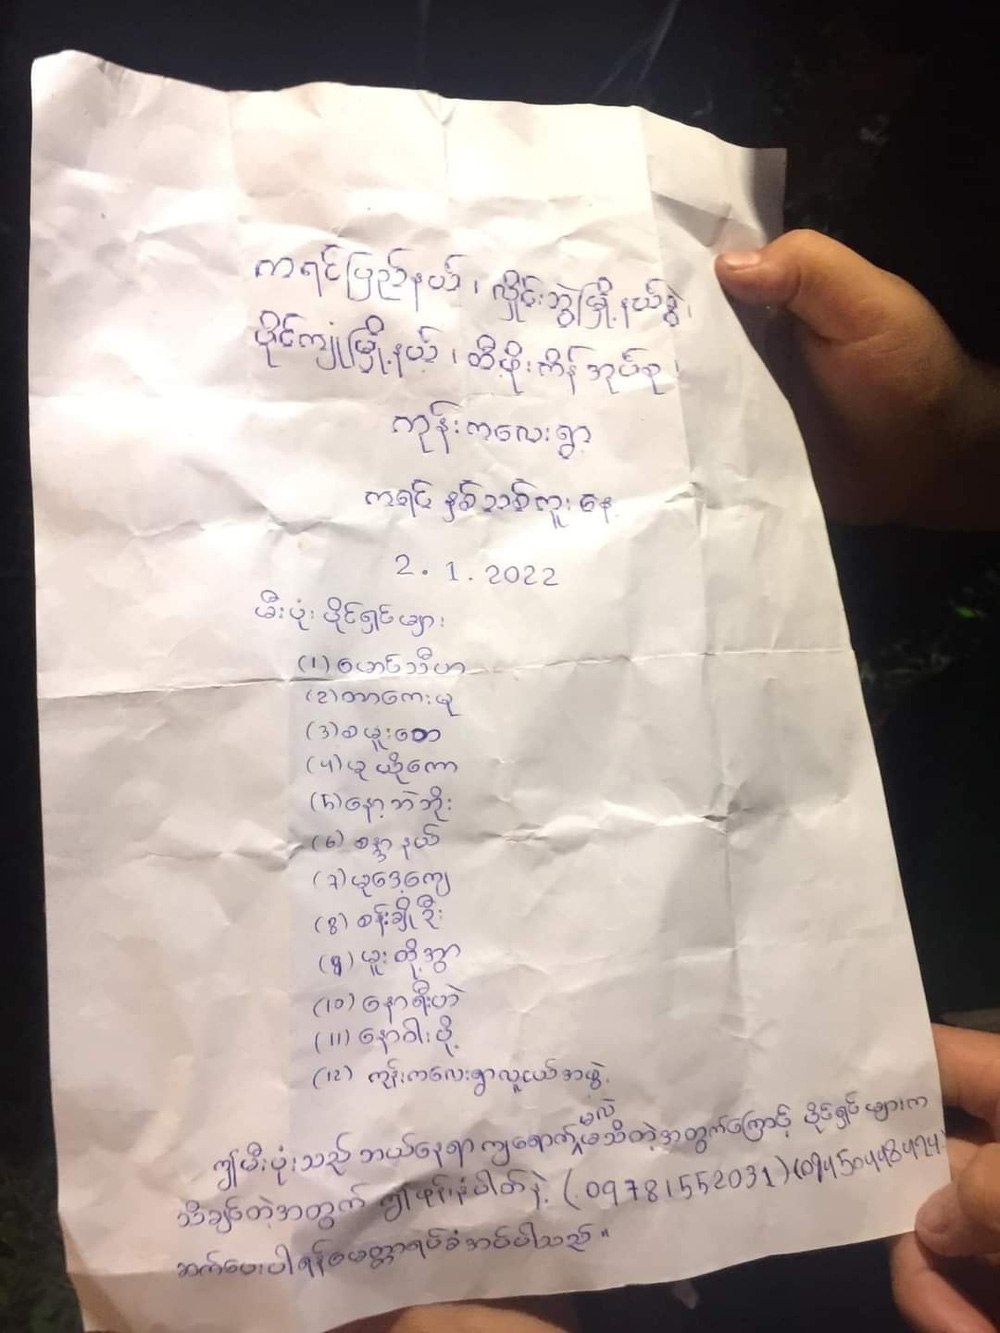 ကရင်ပြည်နယ်၊ လှိုင်းဘွဲမြို့နယ်ခွဲ၊
ပိုင်ကျုံမြို့နယ်၊ တီဖိုးကိန်အုပ်စု၊
ကုန်းကလေးရွာ
ကရင် နှစ်သစ်ကူးနေ့
2.1.2022
မီးပုံး ပိုင်ရှင်များ
(1) စောင်သီဟ
(2) တာကေးမူ
(3) စမူးတော
(4) ယုယိုကော
(5) နော့ဘဲဘိုး
(6) စန္ဒာနယ်
(7) ယုဒေ့ကျေ
(8) စန်းချိုဦး
(9) ယူးထို့အွာ
(10) နောရီးဟဲ
(11) နောဝါးပို့
(12) ကုန်းကလေးရွာလူငယ်အဖွဲ့
ဤမီးပုံးသည် ဘယ်နေရာကျရောက်မှန်းမသိတဲ့အတွက်ကြောင့် ပိုင်ရှင်များက
သိချင်တဲ့အတွက် ဤဖုန်းနံပါတ်နဲ့ (09781552031)
ဆက်ပေးပါရန်မေတ္တာရပ်ခံအပ်ပါသည်။